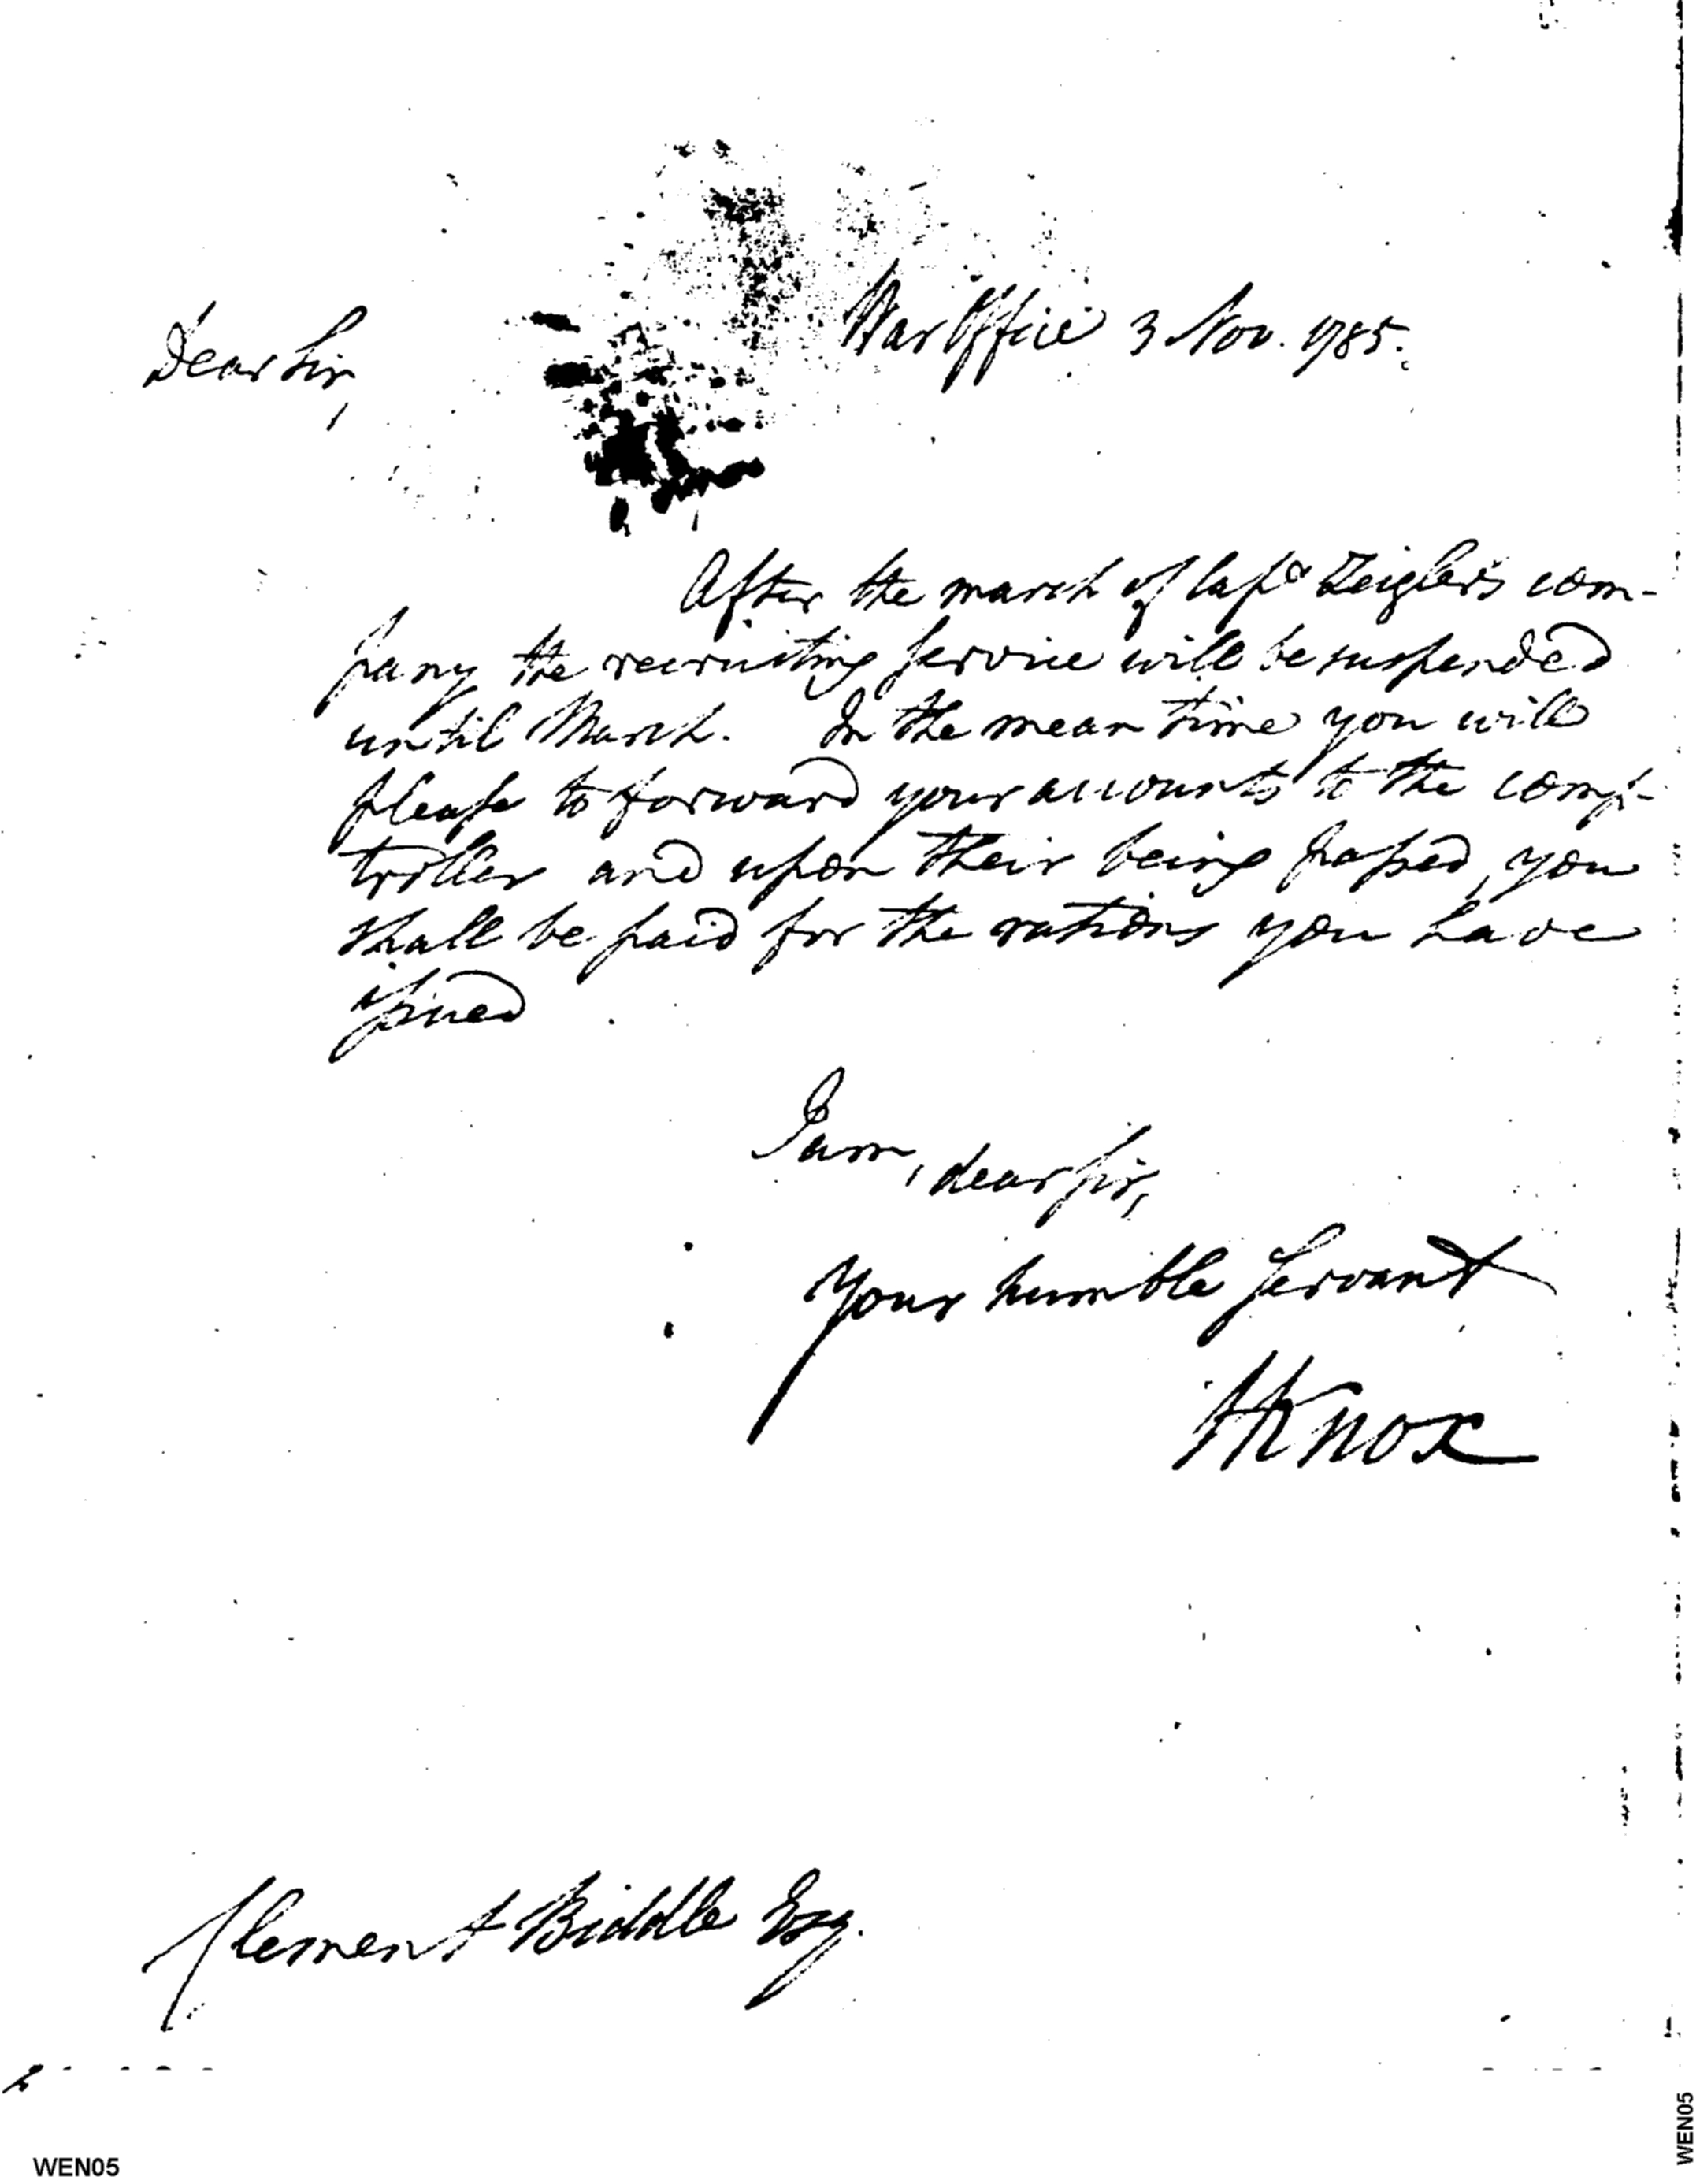 War Office 3 Nov. 1785.
Dear Sir,
After the march of Capt Zeigler's com-
pany the recruiting service will be suspended
until March. In the mean time you will
please to forward your accounts to the comp-
troller and upon their being passed, you
shall be paid for the rations you have
issued.
I am, dear sir,
Your humble servant
HKnox
Clement Biddle Esq.
WEN05
WEN05